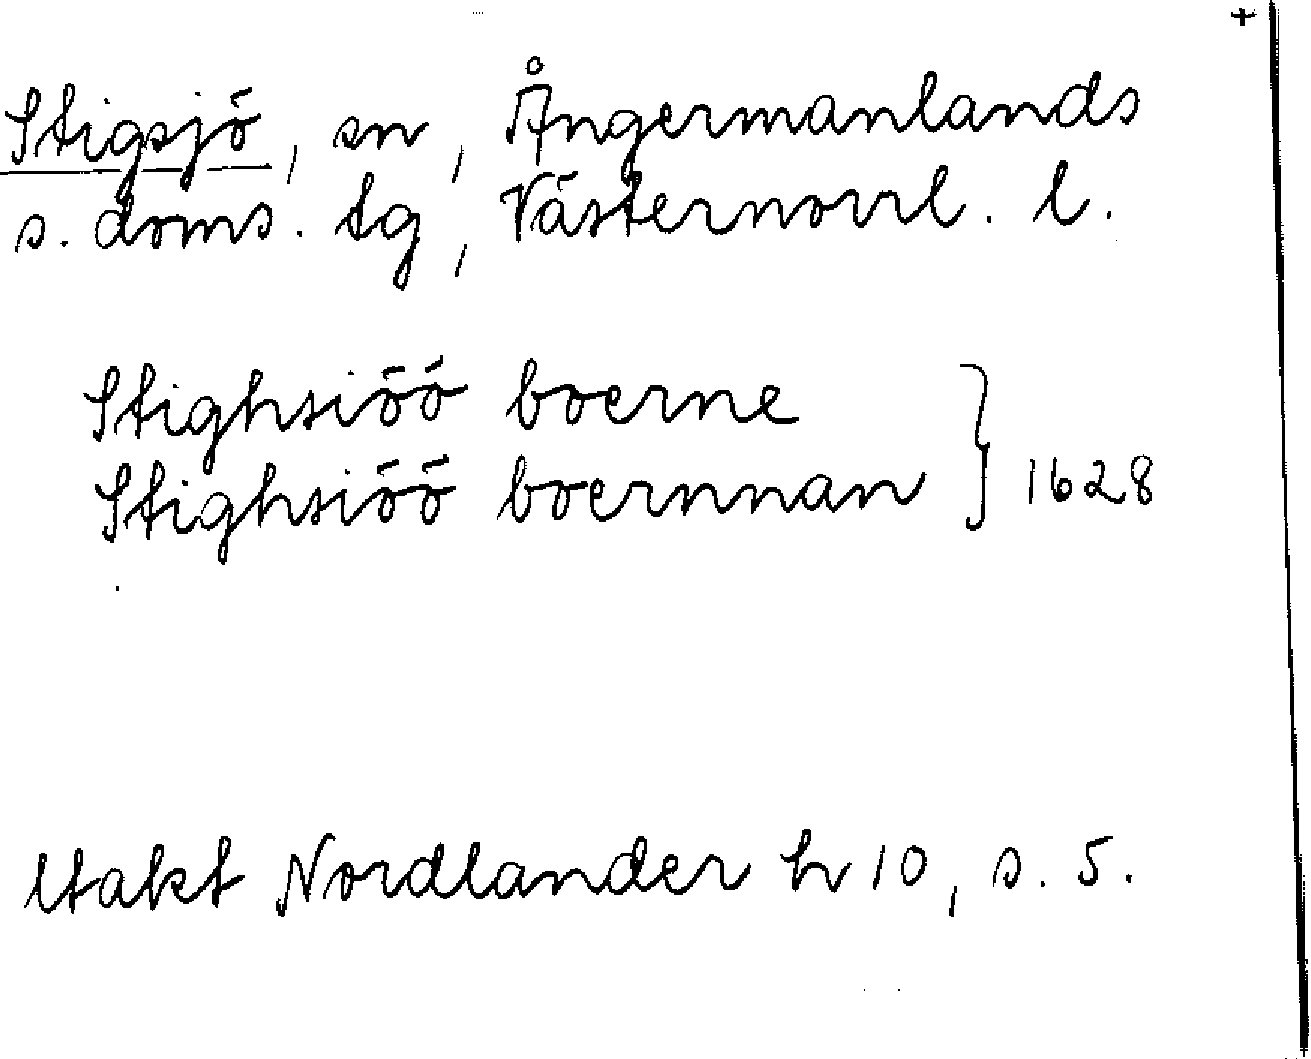 +
Stigsjö, sn, Ångermanlands
s. doms. tg, Västernorrl. l.
Stighsiöö boerne
Stighsiöö boernnan } 1628
Utakt Nordlander h 10, s. 5.